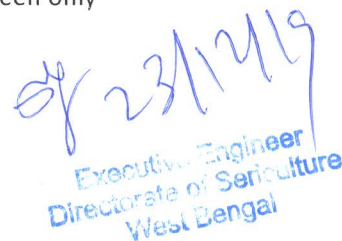 een only
23/12/19
Executive Engineer
Directorate of Sericulture
West Bengal